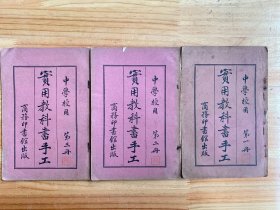 中學校用 第一册
實用教科書手工
商務印書館出版
中學校用 第二册
實用教科書手工
商務印書館出版
中學校用
實用教科書手工
商務印書館出版